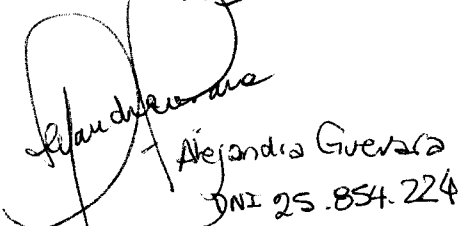 Alejandra Guevara
DNI 25.854.224